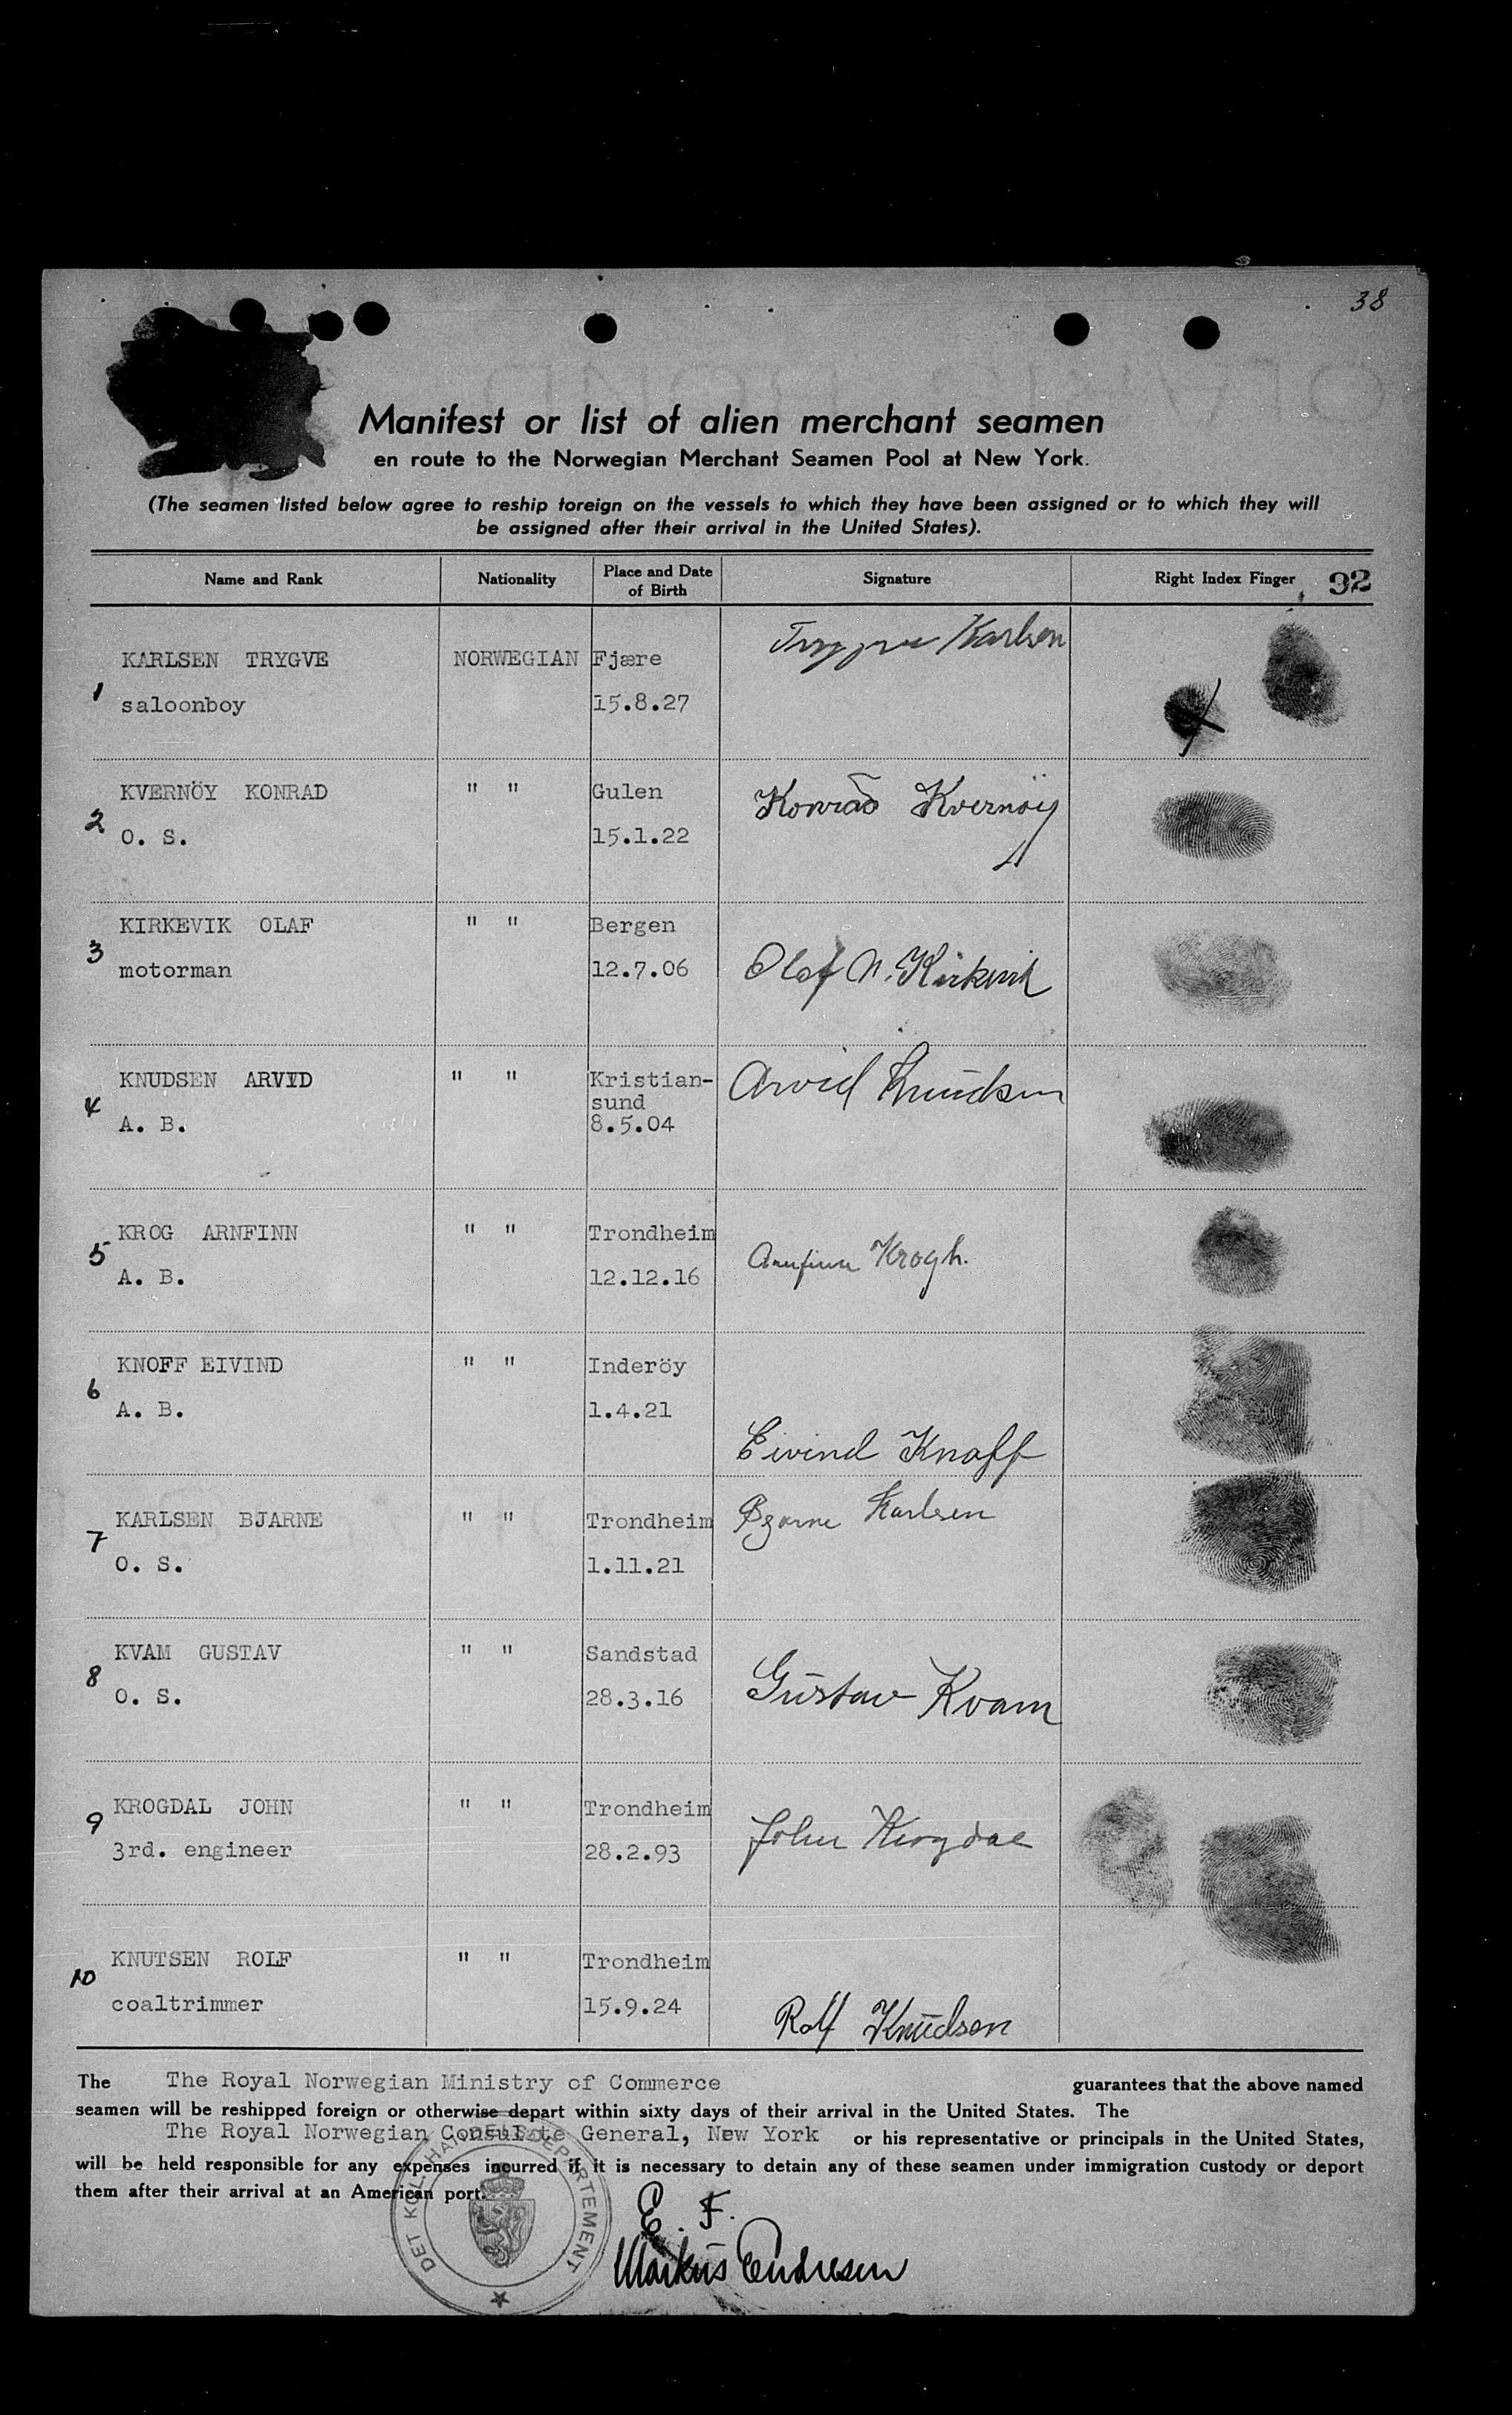 38
Manifest or list of alien merchant seamen
en route to the Norwegian Merchant Seamen Pool at New York.
(The seamen listed below agree to reship foreign on the vessels to which they have been assigned or to which they will
be assigned after their arrival in the United States).
Name and Rank Nationality Place and Date of Birth Signature Right Index Finger 92
1 KARLSEN TRYGVE NORWEGIAN Fjære Trygve Karlsen
saloonboy 15.8.27
2 KVERNÖY KONRAD " " Gulen Konrad Kvernöy
O. S. 15.1.22
3 KIRKEVIK OLAF " " Bergen Olaf N. Kirkevik
motorman 12.7.06
4 KNUDSEN ARVID " " Kristian- Arvid Knudsen
sund
A. B. 8.5.04
5 KROG ARNFINN " " Trondheim Arnfinn Krogh.
A. B. 12.12.16
6 KNOFF EIVIND " " Inderöy
A. B. 1.4.21
Eivind Knoff
7 KARLSEN BJARNE " " Trondheim Bjarne Karlsen
O. S. 1.11.21
8 KVAM GUSTAV " " Sandstad
O. S. 28.3.16 Gustav Kvam
9 KROGDAL JOHN " " Trondheim John Krogdal
3rd. engineer 28.2.93
10 KNUTSEN ROLF " " Trondheim
coaltrimmer 15.9.24 Rolf Knudsen
The The Royal Norwegian Ministry of Commerce guarantees that the above named
seamen will be reshipped foreign or otherwise depart within sixty days of their arrival in the United States. The
The Royal Norwegian Consulate General, New York or his representative or principals in the United States,
will be held responsible for any expenses incurred if it is necessary to detain any of these seamen under immigration custody or deport
them after their arrival at an American port.
DET KGL. HANDELSDEPARTEMENT
E. F.
Markus Andresen